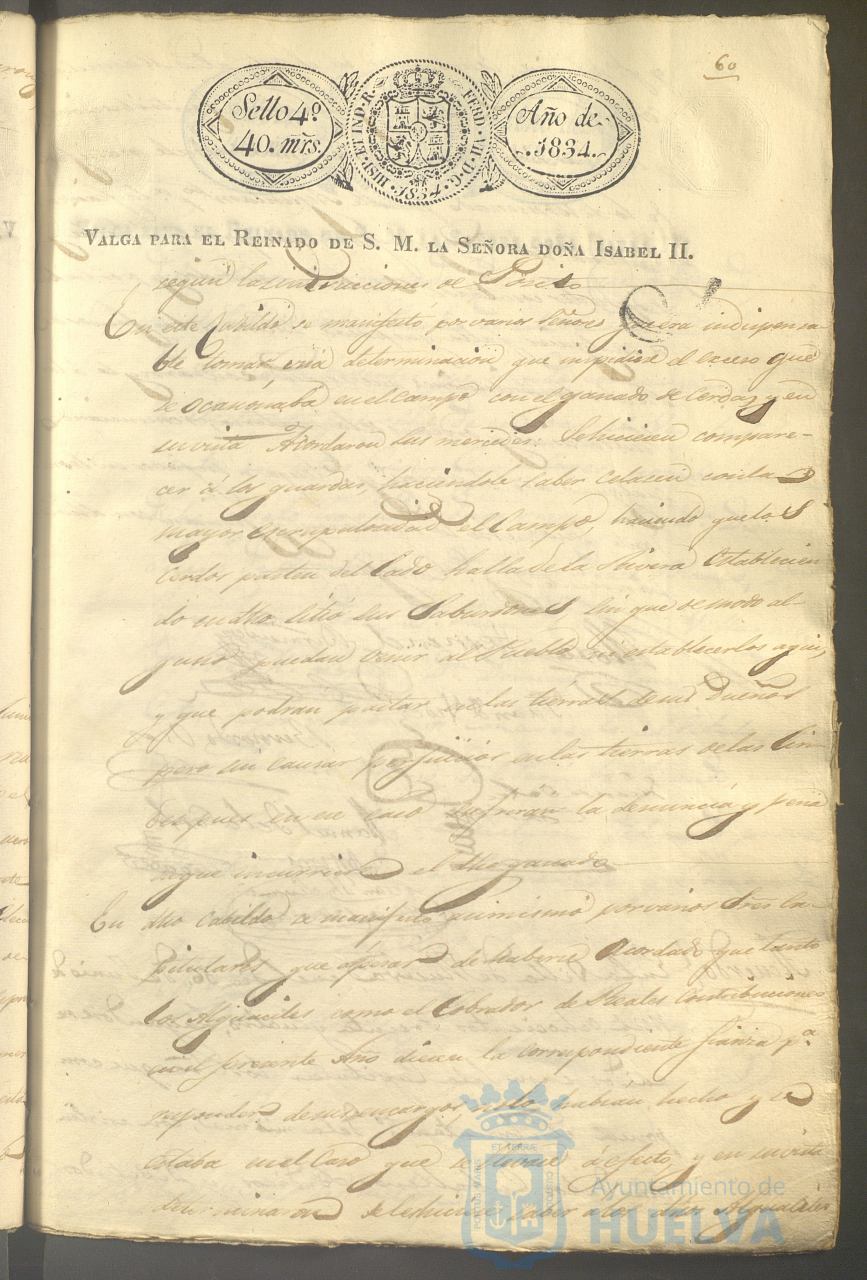 60
Sello 4º
40. mrs.
HISP. ET IND. R. FERD. VII. D. G. 1834.
Año de
1834.
VALGA PARA EL REINADO DE S. M. LA SEÑORA DOÑA ISABEL II.
segun las instrucciones de Posito
En este Cabildo se manifesto por varios Señores q. era indispensa
ble tomar una determinacion que impidiese el exceso que
se ocacionaba en el campo con el ganado de Cerda, y en
su vista Acordaron sus mercedes: Se hiciesen compare-
cer á los guardas, haciendole saber celacen con la
mayor escrupulosidad el Campo, haciendo que los
Cerdos pasten del lado halla de la Rivera Establecien
do en dho sitio sus Saburdones sin que de modo al-
guno puedan venir al Pueblo ni establecerlos aqui,
y que podran pastar en las tierras de sus Dueños
pero sin causar perjuicios en las tierras de las
des pues en su caso sufriran la denuncia y pena
a que incurriese el dho ganado
En dho Cabildo se manifesto asimismo por varios Sres Ca-
pitulares que apesar de haberse Acordado que tanto
los Alguaciles como el Cobrador de Reales Contribuciones
en el presente Año diesen la correspondiente fianza pa.
responder de sus encargos no lo habian hecho y se
estaba en el caso que se llevase á efecto, y en su vista
determinaron se le hiciese saber a los dhos Alguaciles
ET TERRÆ
Ayuntamiento de
HUELVA